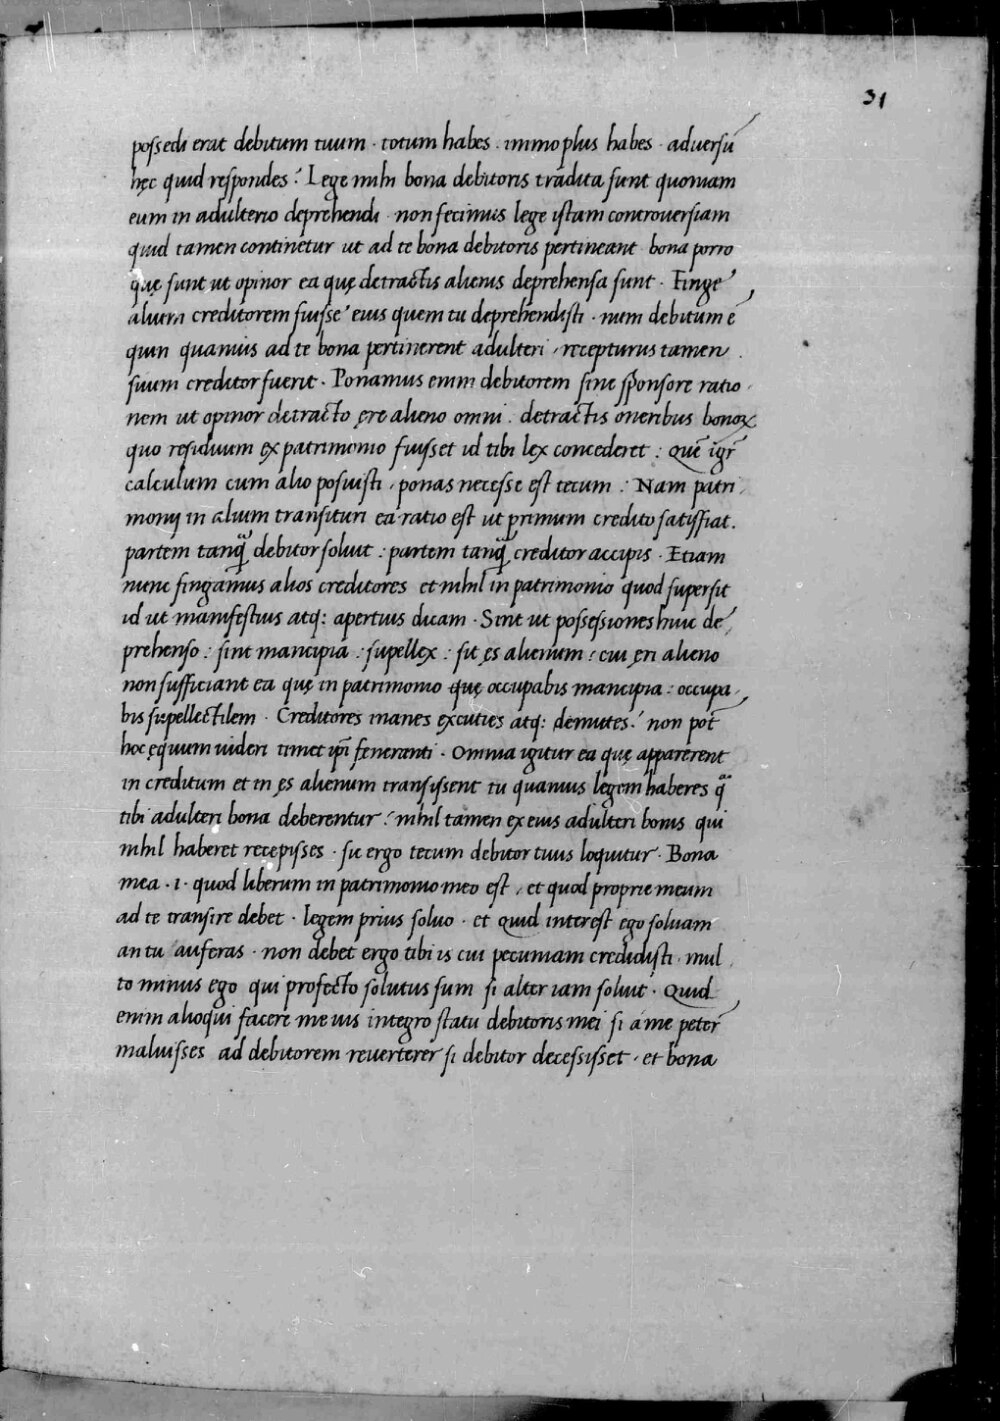 31
possedi erat debitum tuum · totum habes · immo plus habes · aduersū
hęc quid respondes? Lege mihi bona debitoris tradita sunt quoniam
eum in adulterio deprehendi · non fecimus lege istam controuersiam
quid tamen continetur ut ad te bona debitoris pertineant · bona porro
quę sunt ut opinor ea quę detractis alienis deprehensa sunt · Finge
alium creditorem fuisse eius quem tu deprehendisti · num debitum ē
quin quamuis ad te bona pertinerent adulteri, recepturus tamen
suum creditor fuerit · Ponamus enim debitorem sine sponsore ratio
nem ut opinor detracto ęre alieno omni · detractis oneribus bonoꝝ
quo residuum ex patrimonio fuisset id tibi lex concederet : Quē igr̄
calculum cum alio posuisti, ponas necesse est tecum : Nam patri
monij in alium transituri ea ratio est ut primum credito satisfiat.
partem tanq̃ debitor soluit : partem tanq̃ creditor accipis · Etiam
nunc fingamus alios creditores et nihil in patrimonio quod supersit
id ut manifestius atq: apertius dicam · Sint ut possessiones huic de
prehenso : sint mancipia : supellex : sit ęs alienum : cui ęri alieno
non sufficiant ea quę in patrimonio quę occupabis mancipia : occupa
bis supellectilem · Creditores inanes excuties atq: demutes? non pōt
hoc ęquum uideri timet ip̄i feneranti · Omnia igitur ea quę apparerent
in creditum et in ęs alienum transissent tu quamuis legem haberes q̃
tibi adulteri bona deberentur? nihil tamen ex eius adulteri bonis qui
nihil haberet recepisses · sic ergo tecum debitor tuus loquitur · Bona
mea · i · quod liberum in patrimonio meo est, et quod proprie meum
ad te transire debet · legem prius soluo · et quid interest ego soluam
an tu auferas · non debet ergo tibi is cui pecuniam credidisti · mul
to minus ego qui profecto solutus sum si alter iam soluit · Quid
enim alioqui facere me uis integro statu debitoris mei si a me peter̄
maluisses ad debitorem reuerterer si debitor decessisset · et bona